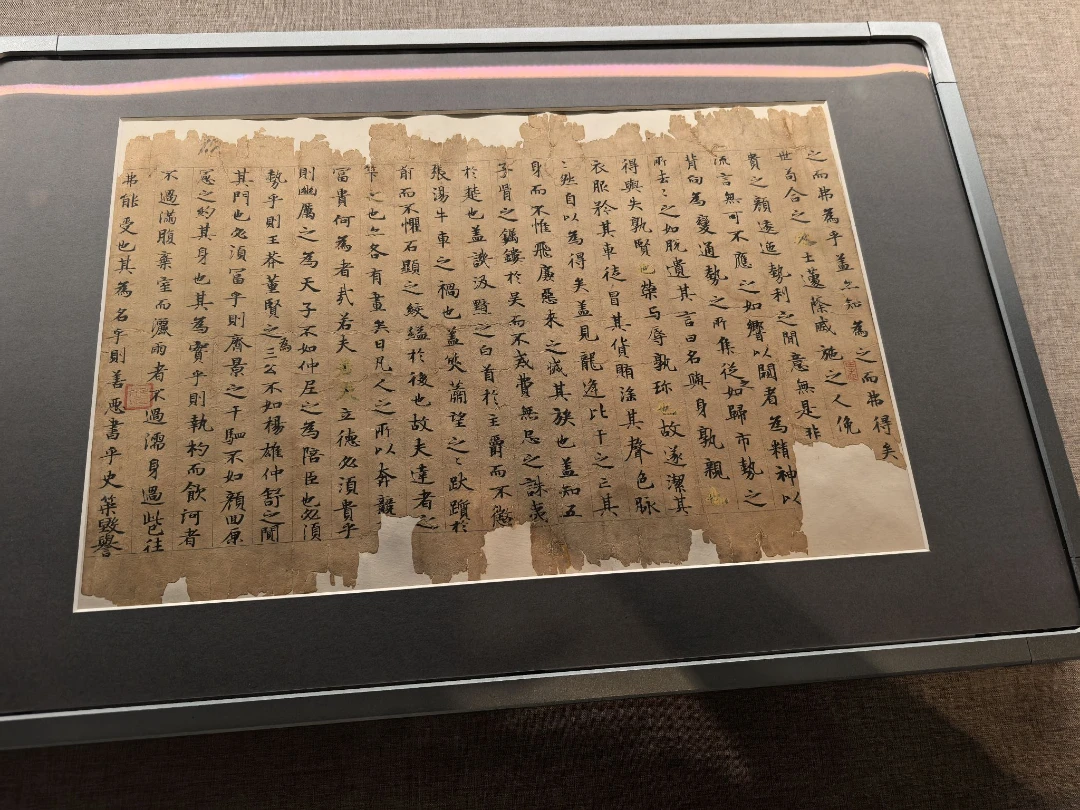 之而弗為乎蓋亦知為之而弗得矣
世苟合之士蘧蒢戚施之人俛
貴之顔逶迤勢利之間意無是非
流言無可不應之如響以闚者為精神以
背向為變通勢之所集從之如歸市勢之
所去〻之如脱遺其言曰名與身孰親也
得與失孰賢也榮与辱孰珎也故遂潔其
衣服矜其車徒冒其貨賄淫其聲色脉
〻然自以為得矣盖見龍逢比干之亡其
身而不惟飛廉惡来之滅其族也盖知五
子胥之鐲鏤於吳而不戒費無忌之誅夷
於楚也盖譏汲黯之白首於主爵而不懲
張湯牛車之禍也盖笑蕭望之〻跋躓於
前而不懼石顯之絞縊於後也故夫達者之
筭〻也亦各有畫矣曰凡人之所以奔競
冨貴何為者哉若夫立德必須貴乎
則幽厲之為天子不如仲尼之為陪臣也必須
勢乎則王莽董賢之為三公不如楊雄仲舒之闃
其門也必須冨乎則齊景之千駟不如顔回原
憲之約其身也其為實乎則執杓而飲河者
不過滿腹棄室而灑雨者不過濡身過此已往
弗能受也其為名乎則善惡書乎史筞毀譽